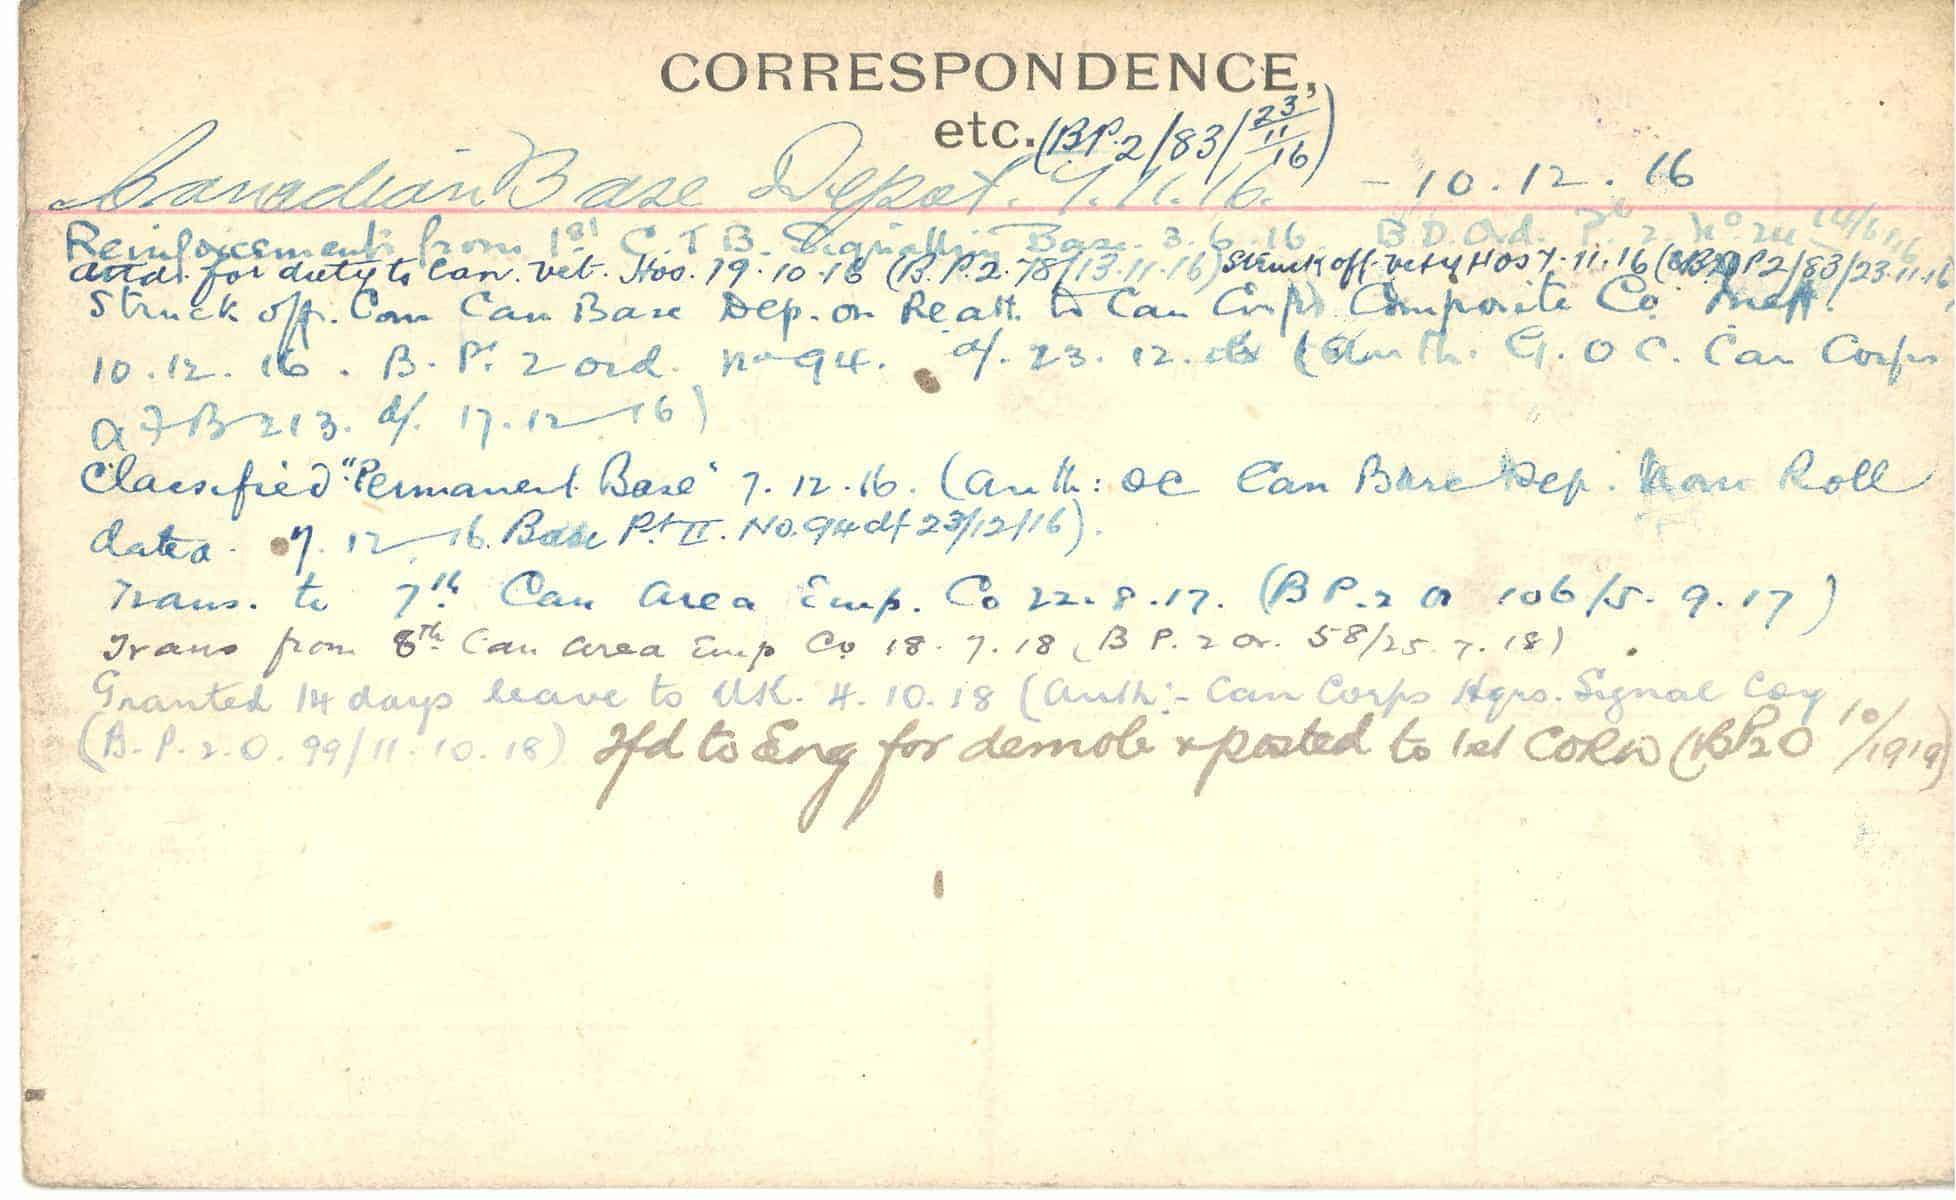 CORRESPONDENCE,
etc. (B.P.2/83/23/11/16)
Canadian Base Depot. 7.11.16. - 10.12.16
Reinforcement from 1st C.T.B. Base 3.6.16 B.D. Ord. Pt 2 No 24 14/6/16
attd. for duty to Can. Vet. Hos. 19.10.16 (B.P.2.78/13.11.16) Struck off Vety Hos 7.11.16 (B.P2/83/23.11.16
Struck off. Can Base Dep. on Reatt. to Can Corps Composite Co
10.12.16. B. Pt. 2 ord. no 94. d/. 23.12.16 (Auth. G.O.C. Can Corps
A F B 213. d/. 17.12.16)
Classified "Permanent Base" 7.12.16. (Auth: OC Can Base Dep. Nom Roll
dated. 7.12.16. Base Pt. II. No. 94 d/ 23/12/16).
Trans. to 7th Can Area Emp. Co 22.8.17. (B P.2 O 106/5.9.17)
Trans from 8th Can Area Emp Co 18.7.18 (B P.2 Or. 58/25.7.18)
Granted 14 days leave to UK. 4.10.18 (Auth:- Can Corps Hqrs. Signal Coy
(B.P.2.O. 99/11.10.18) Tfd to Eng for demob & posted to 1st CORD (BP2O 10/1919)